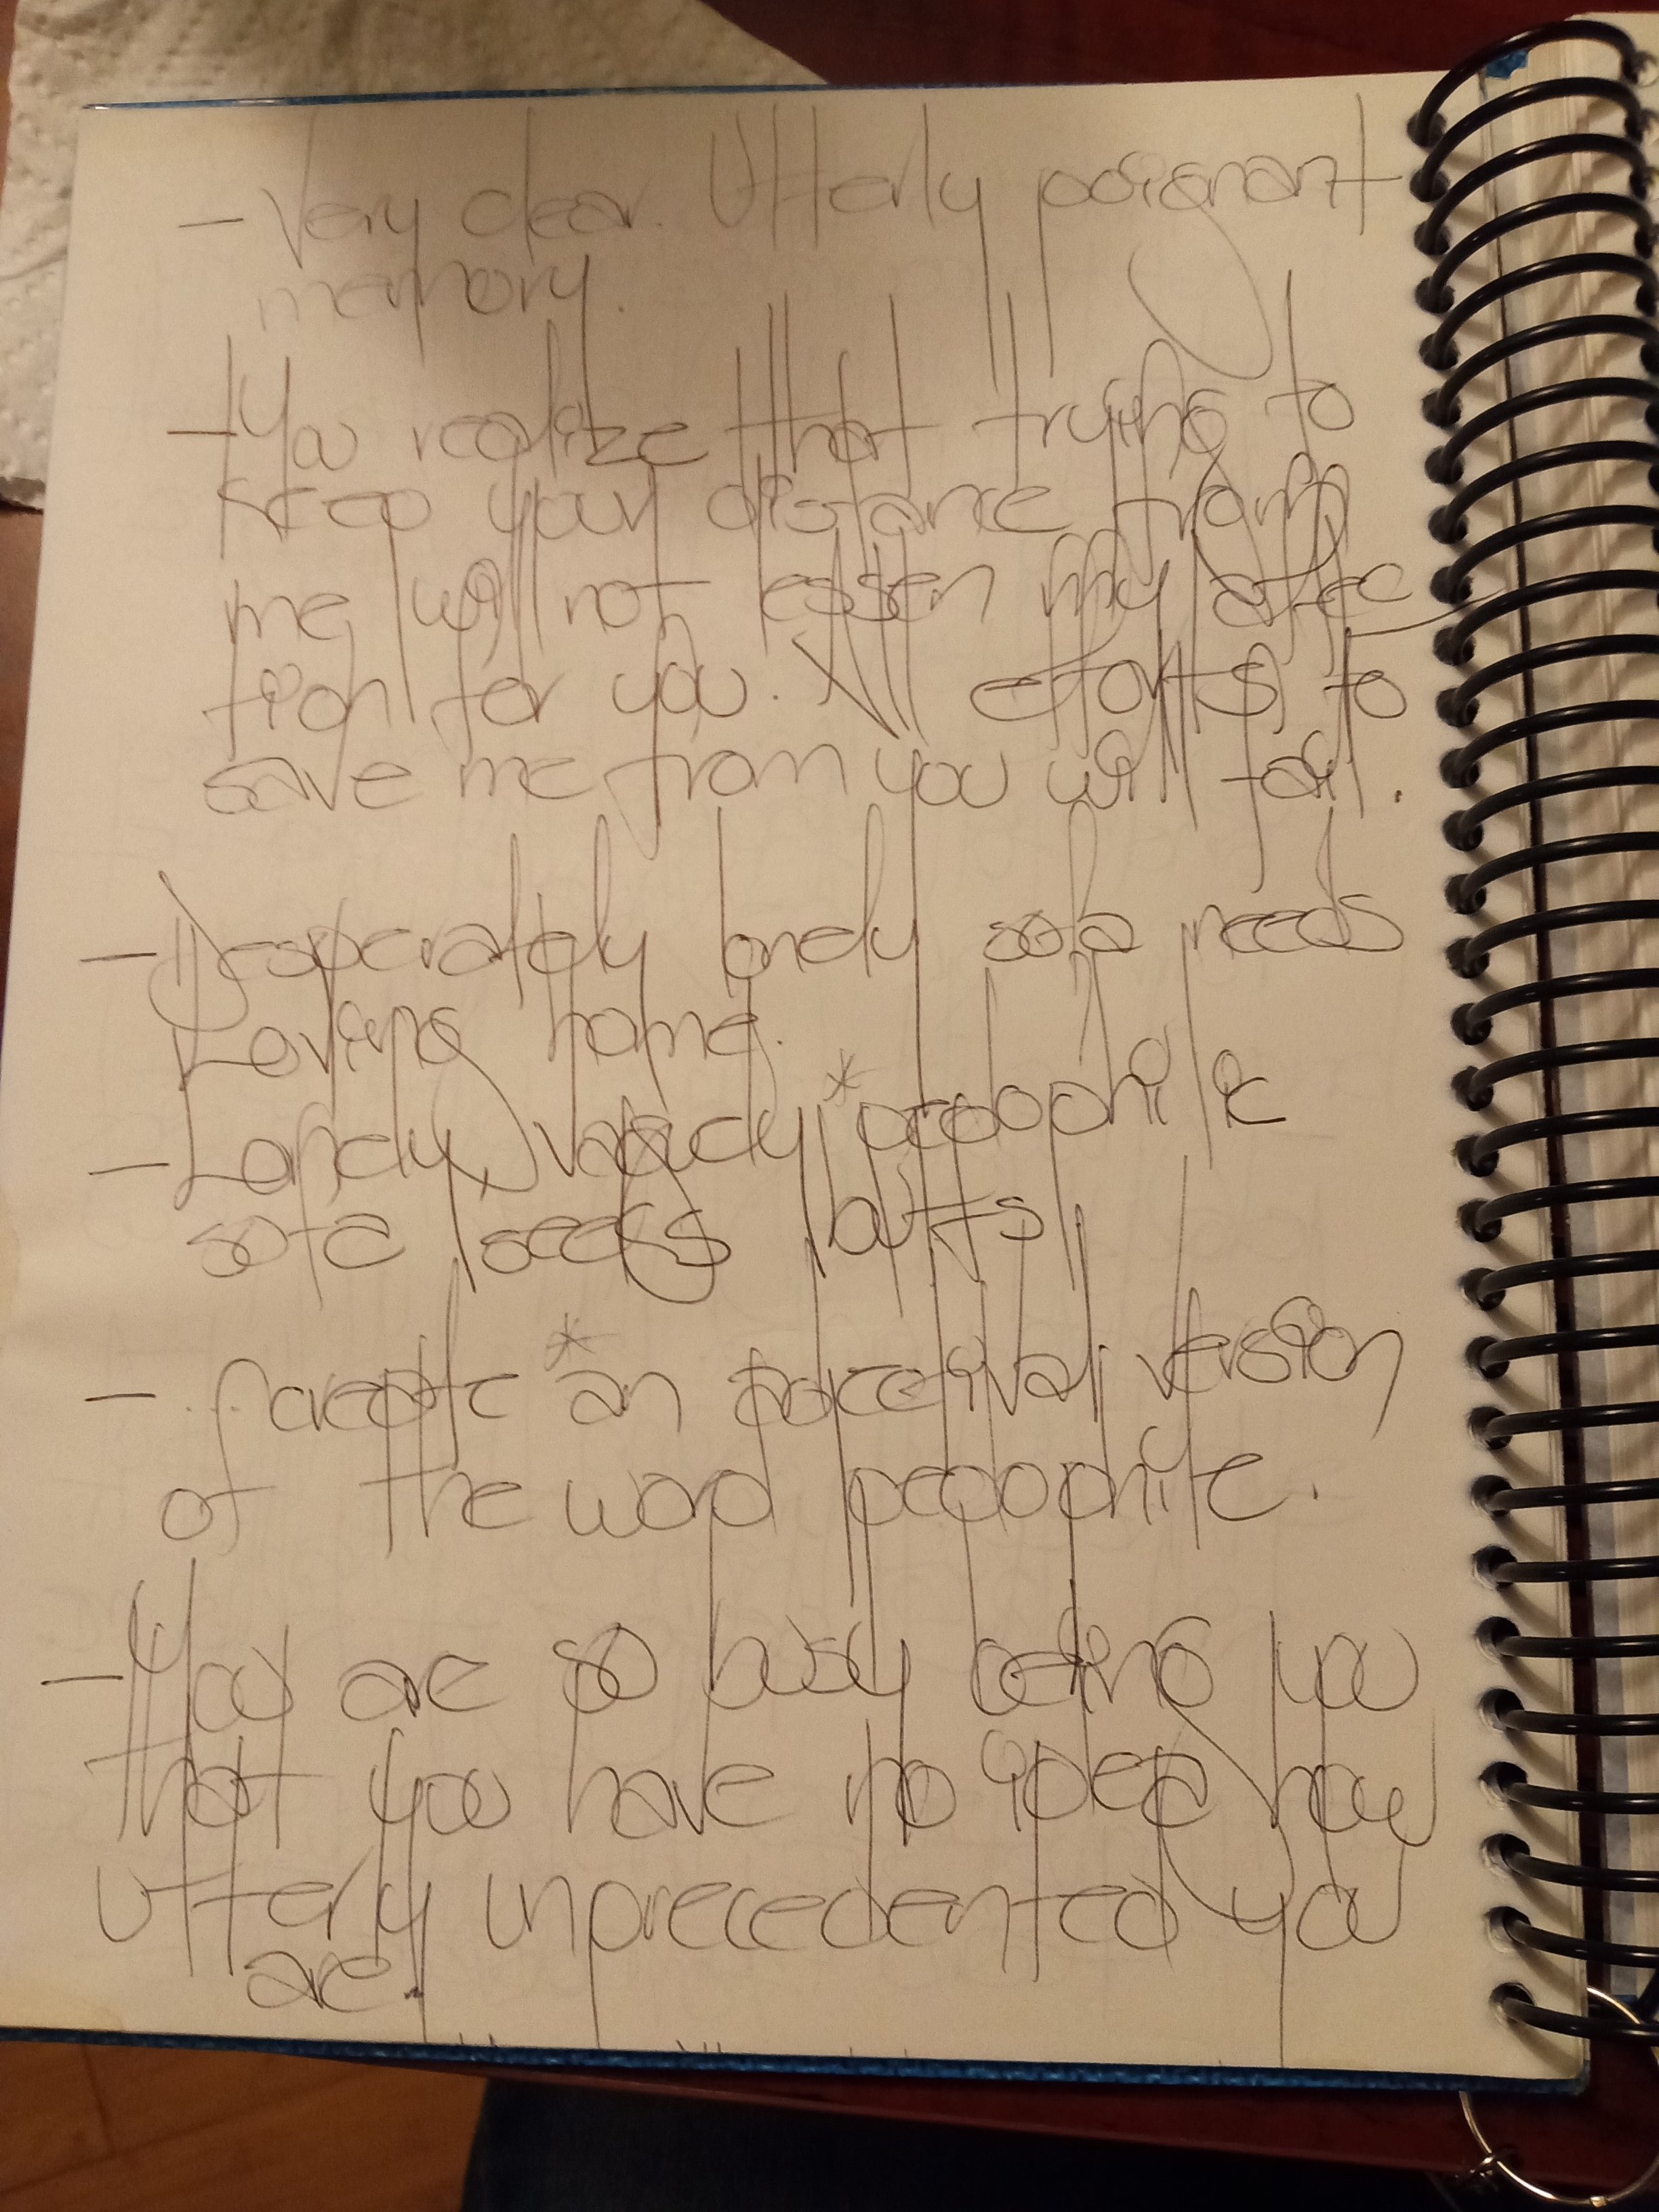 - Very clear. Utterly poignant
memory.
- You realize that trying to
keep your distance from
me will not lessen my affec
tion for you. All efforts to
save me from you will fail.
- Desperately lonely sofa needs
Loving home.
- Lonely, *pedophilic
sofa seeks butts
- create * an adjectival version
of the word pedophile.
- You are so busy being you
that you have no idea how
utterly unprecedented you
are.